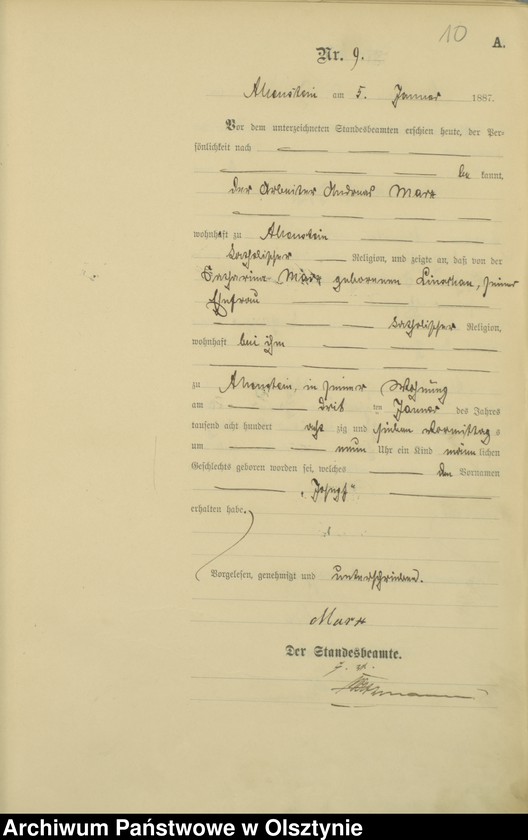 10
A.
Nr. 9.
Allenstein am 5. Januar 1887.
Vor dem unterzeichneten Standesbeamten erschien heute, der Per-
sönlichkeit nach
be kannt,
der Arbeiter Andreas Marx
wohnhaft zu Allenstein
katholischer Religion, und zeigte an, daß von der
Catharina Marx geborenen seiner
Ehefrau
katholischer Religion,
wohnhaft bei ihm
zu Allenstein, in seiner Wohnung
am drit ten Januar des Jahres
tausend acht hundert acht zig und sieben Vormittag s
um neun Uhr ein Kind männ lichen
Geschlechts geboren worden sei, welches den Vornamen
„Joseph“
erhalten habe.
Vorgelesen, genehmigt und unterschrieben.
Marx
Der Standesbeamte.
Archiwum Państwowe w Olsztynie